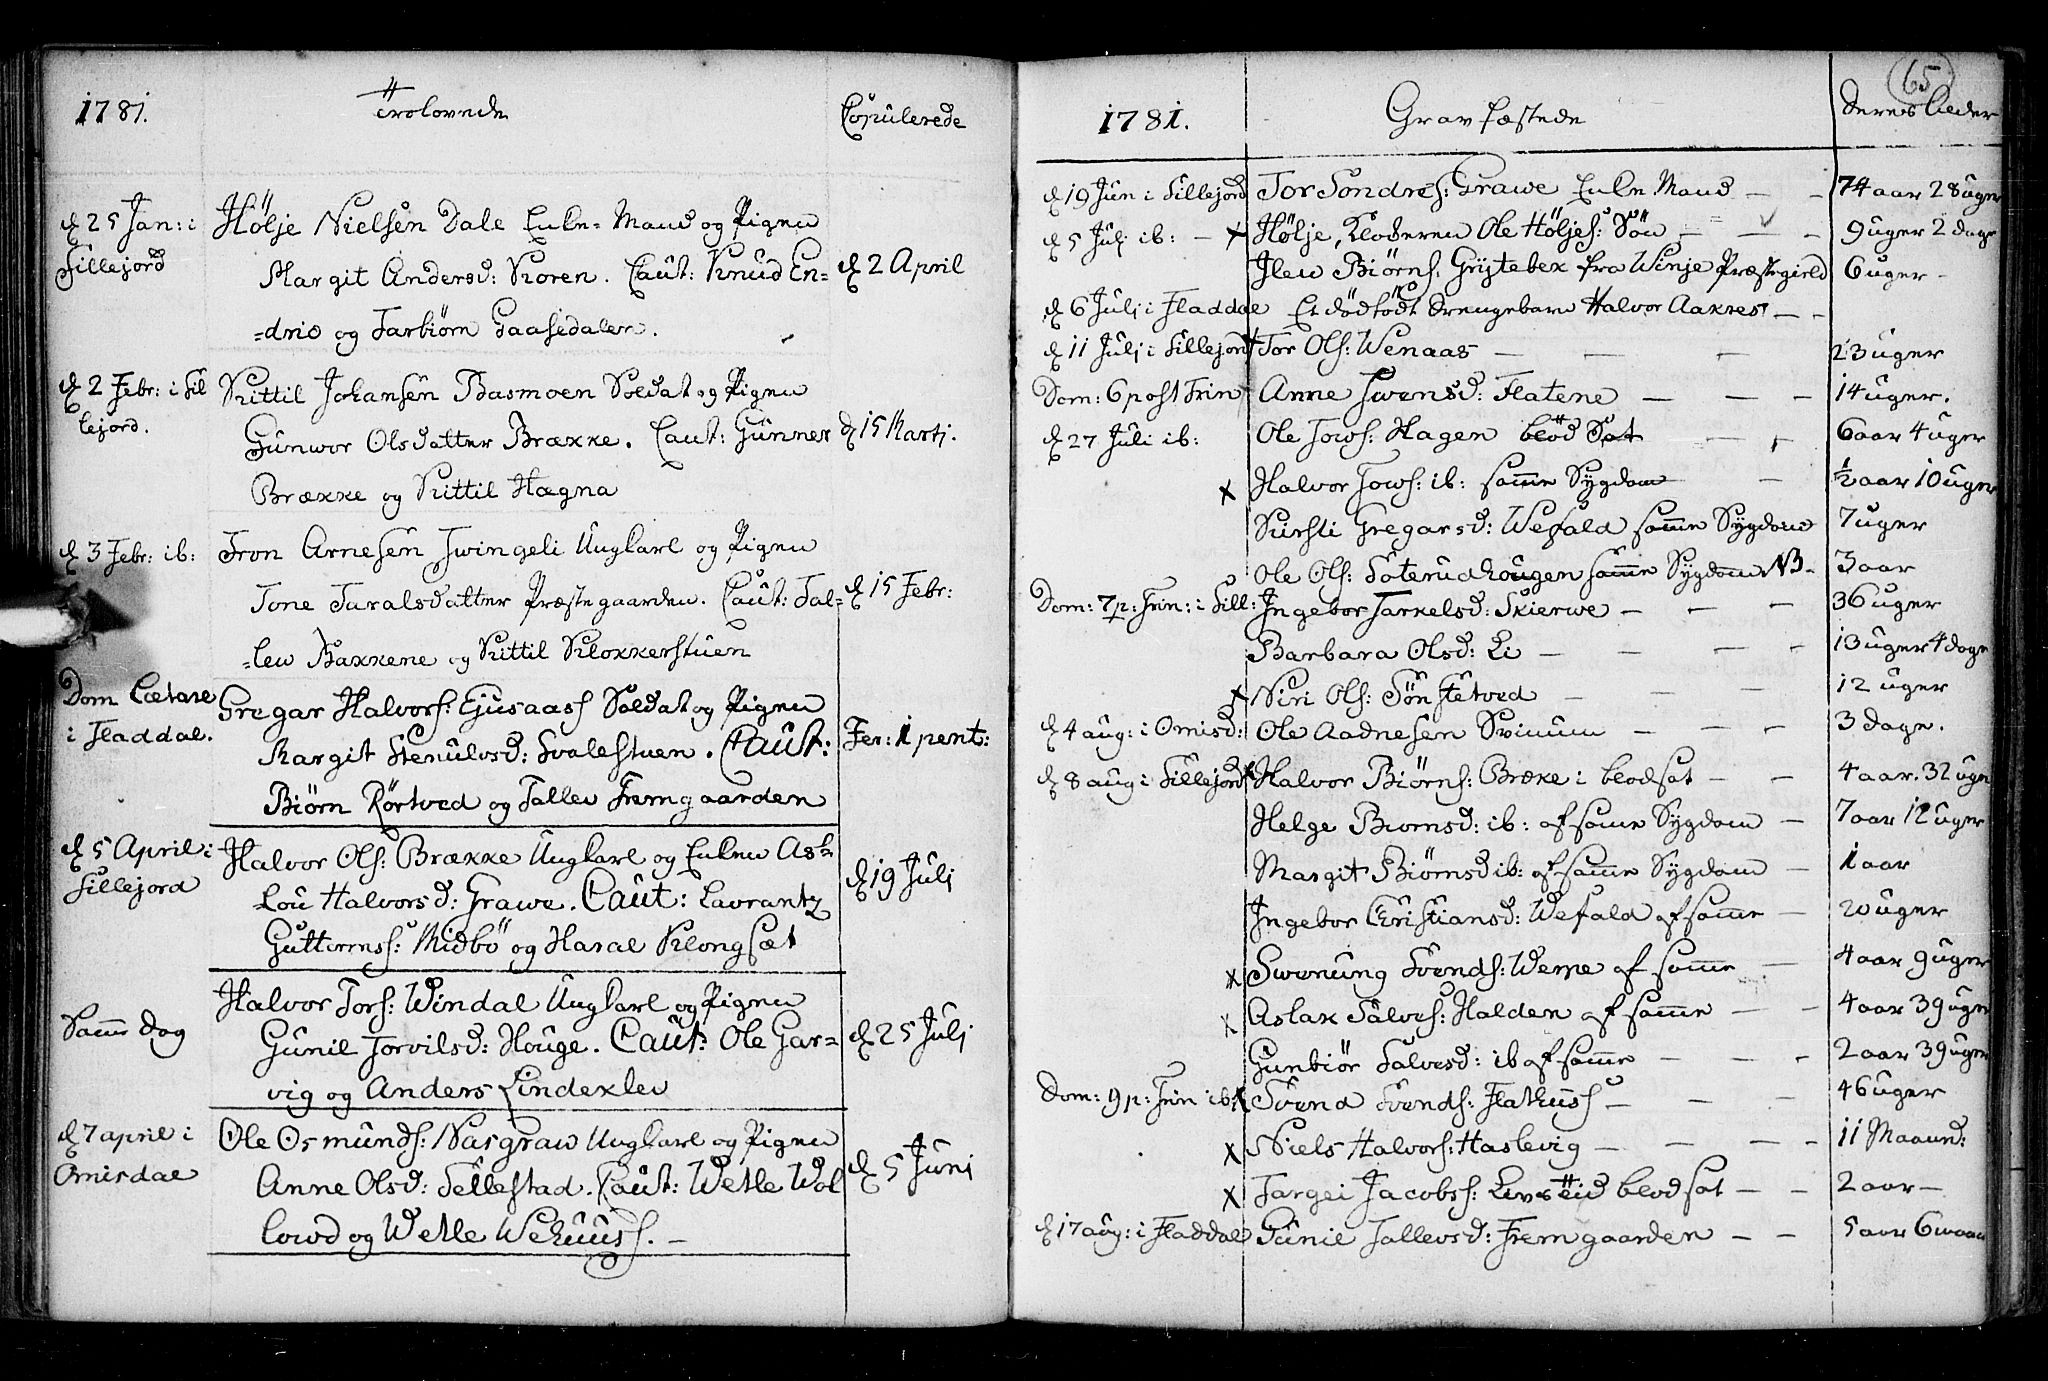 1781.
Trolovede
Copulerede
d 25 Jan: i
Sillejord
Hølje Nielsen Dale Enke-Mand og Pigen
Margit Andersd: Moren. Caut: Knud En-
-dris og Tarbiørn Gaasedalen.
d 2 April
d 2 Febr: i Sil
lejord.
Kittil Johansen Basmoen Soldat og Pigen
Gunvor Olsdatter Brække. Caut: Gunner
Brække og Kittil Hægna
d 15 Martj.
d 3 Febr: ib:
Tron Arnesen Jwingeli Ungkarl og Pigen
Tone Taralsdatter Præstegaarden. Caut: Tal-
-lew Bakkene og Kittil Klokkerstuen
d 15 Febr:
Dom Lætare
i Fladdal.
Gregar Halvors: Gjusaas Soldat og Pigen
Margit Stenulvsd: Svalestuen. Caut:
Biørn Rørtved og Tallev Fremgaarden
Fer: 1 pent:
d 5 April i
Sillejord
Halvor Ols: Brække Ungkarl og Enken As-
-lou Halvorsd: Grawe. Caut: Lavrantz
Guttorms: Midbö og Haral Klongsæt
d 19 Julj
Samme Dag
Halvor Tors: Windal Ungkarl og Pigen
Gunil Torvilsd: Houge. Caut: Ole Gar-
vig og Anders Lindeklev
d 25 Julj
d 7 april i
Omisdal
Ole Osmunds: Nasgraw Ungkarl og Pigen
Anne Olsd: Tellestad. Caut: Wetle Wol
lowd og Wetle Wehuus.
d 5 Junj
65
1781.
Gravfæstede
Deres Alder
d 19 Jun i Sillejord Tor Sondres: Grawe Enke Mand 74 aar 28 uger
d 5 Julj ib: x Hølje, Klokeren Ole Höljes: Sön 9 uger 2 dage
Ilew Biørns: Grijtebek fra Winje Præstegield 6 uger
d 6 Julj i Fladdal Et dödfödt Drengebarn Halvor Aakres
d 11 Julj i Sillejord x Tor Ols: Wenaas 23 uger
Dom: 6 post Trin Anne Swensd: Flatene 14 uger.
d 27 Juli ib: Ole Jows: Hagen blöd Sot 6 aar 4 uger
x Halvor Jows: ib: samme Sygdom 1/2 aar 10 uger
Kirsti Gregarsd: Wefald samme Sygdom 7 uger
Ole Ols: Soterudhougen samme Sygdom NB. 3 aar
Dom: 7 p: Trin: i Sill: Ingebor Tarkelsd: Skierwe 36 uger
Barbara Olsd: Li 13 uger 4 dage
x Niri Ols: Sönstetved 12 uger
d 4 aug: i Omisd: Ole Aadnesen Svinum 3 dage.
d 8 aug i Sillejord x Halvor Biørns: Bræke i blodsot 4 aar. 32 uger
Helge Biornsd: ib: af samme Sygdom 7 aar 12 uger
Margit Biörnsd ib: af samme Sygdom 1 aar
Ingebor Christiansd: Wefald af samme 20 uger
x Swenung Svends: Werne af samme 4 aar 9 uger
x Aslak Sälves: Halden af samme 4 aar 39 uger
Gunbiör Salvesd: ib af samme 2 aar 39 uger
Dom: 9 p: Trin ib: x Svend Svends: Flathus 46 uger
x Niels Halvors: Haslevig 11 Maaned:
x Targei Jacobs: Livsteid blodsot 2 aar
d 17 aug: i Fladdal Gunil Tallevsd: Fremgaarden 5 aar 6 maan